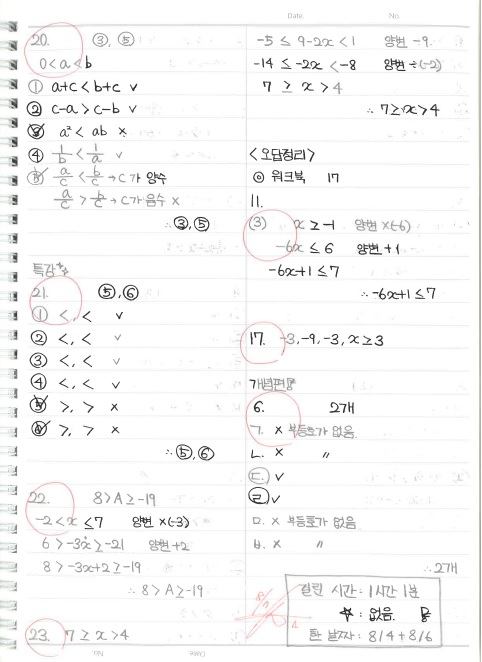 20. ③, ⑤
0<a<b
① a+c<b+c v
② c-a>c-b v
③ a²<ab x
④ 1/b < 1/a v
⑤ a/c < b/c → c가 양수
a/c > b/c → c가 음수 x
∴ ③, ⑤
특강
21. ⑤, ⑥
① <, < v
② <, < v
③ <, < v
④ <, < v
⑤ >, > x
⑥ >, > x
∴ ⑤, ⑥
22. 8>A≥-19
-2<x≤7 양변 ×(-3)
6>-3x≥-21 양변+2
8>-3x+2≥-19
∴ 8>A≥-19
23. 7≥x>4
Date. No.
-5≤9-2x<1 양변 -9.
-14≤-2x<-8 양변 ÷(-2)
7≥x>4
∴ 7≥x>4
<오답정리>
◎ 워크북 17
11.
(3) x≥-1 양변 ×(-6)
-6x≤6 양변+1
-6x+1≤7
∴ -6x+1≤7
17. -3, -9, -3, x≥3
개념편
6. 2개
ㄱ. x 부등호가 없음.
ㄴ. x 〃
ㄷ. v
ㄹ. v
ㅁ. x 부등호가 없음
ㅂ. x 〃
∴ 2개
걸린 시간: 1시간 1분
☆: 없음.
푼 날짜: 8/4+8/6